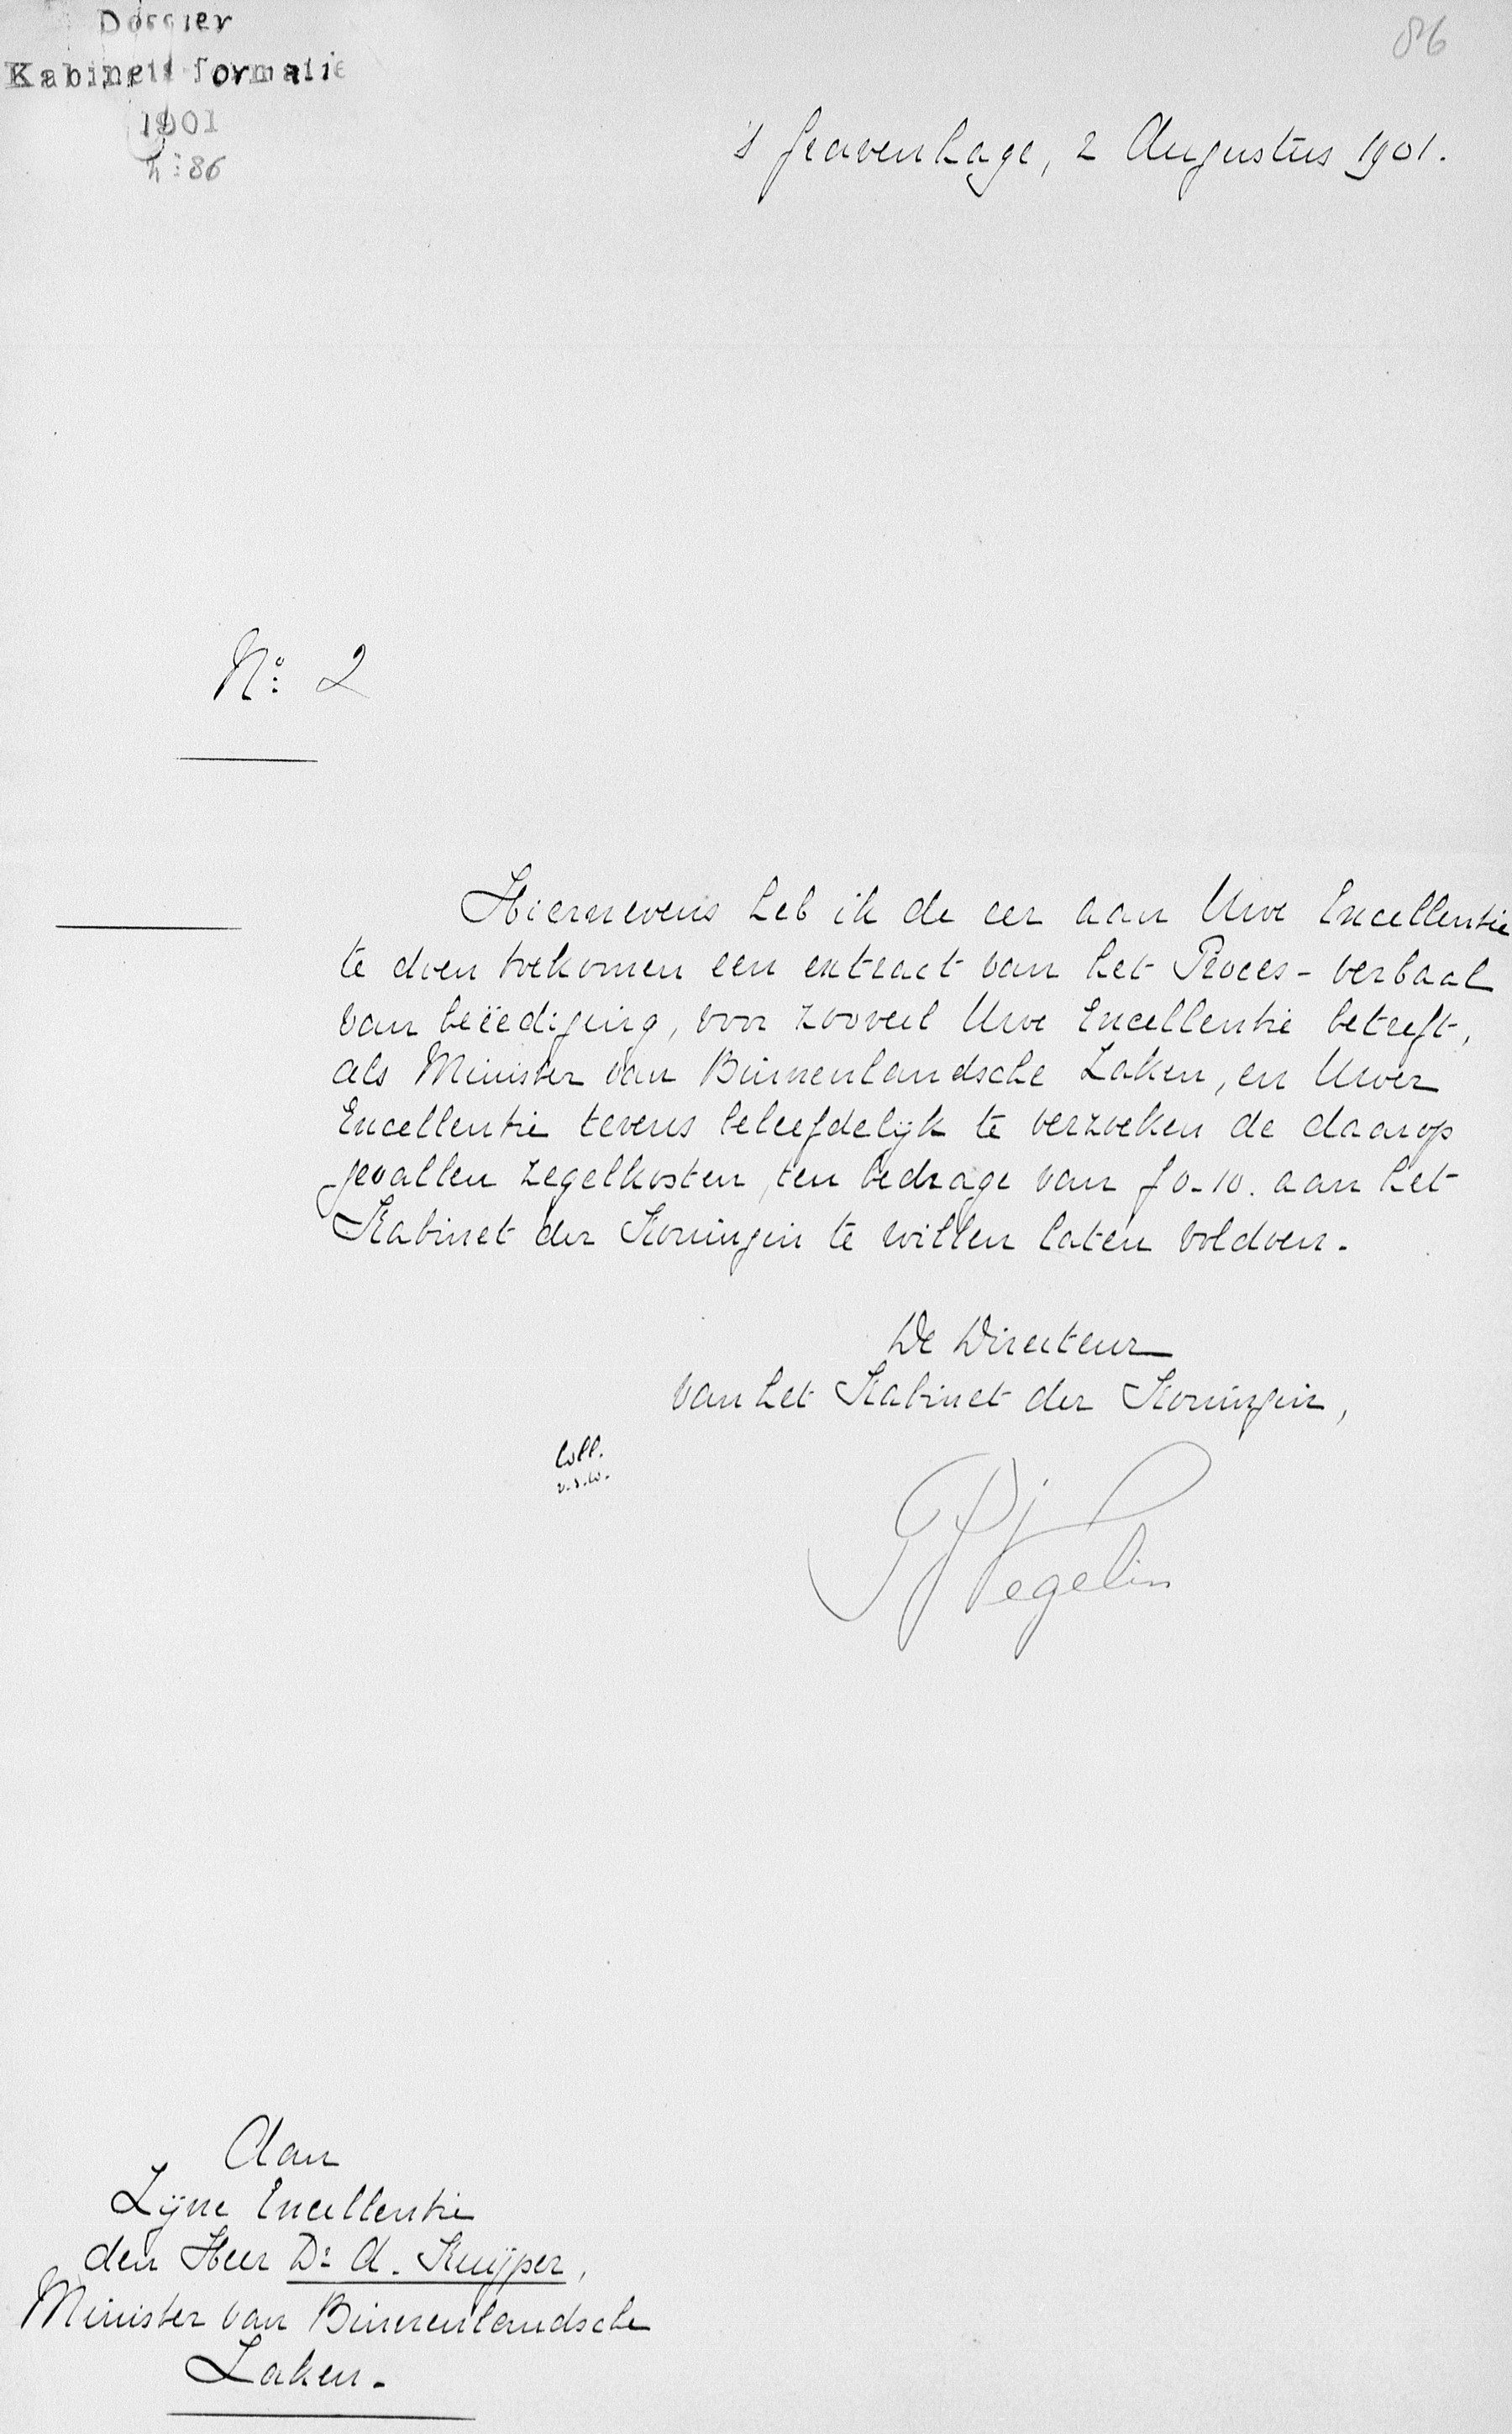 Dossier
Kabinetsformatie
1901
N: 86
86
's Gravenhage, 2 Augustus 1901.
No: 2
Hiernevens heb ik de eer aan Uwe Excellentie
te doen toekomen een extract van het Proces-verbaal
van beëediging, voor zooveel Uwe Excellentie betreft,
als Minister van Binnenlandsche Zaken, en Uwer
Excellentie tevens beleefdelijk te verzoeken de daarop
gevallen zegelkosten, ten bedrage van f 0.10. aan het
Kabinet der Koningin te willen laten voldoen.
De Directeur
van het Kabinet der Koningin,
Coll.
Vegelin
Aan
Zijne Excellentie
den Heer Dr A. Kuijper,
Minister van Binnenlandsche
Zaken.